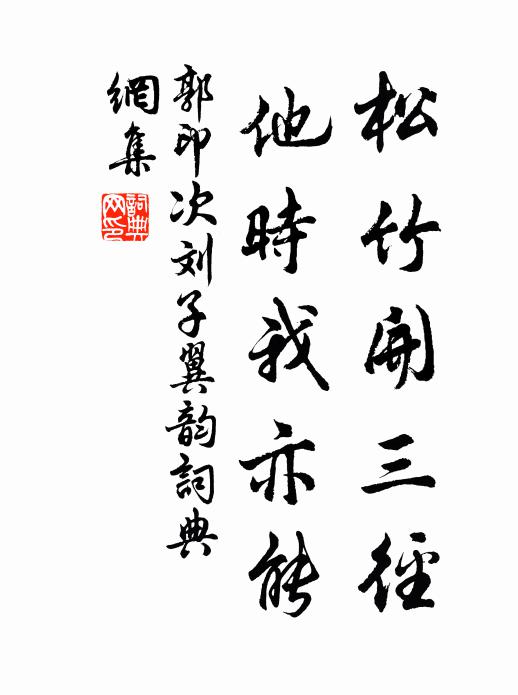 松竹開三徑
他時我亦能
郭印次刘子翼韵詞典
網集
詞典网印